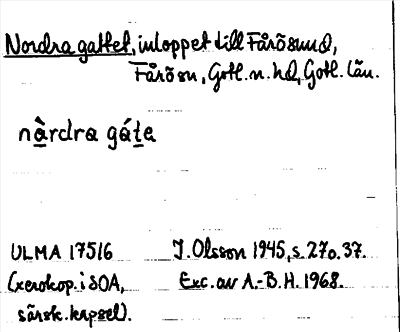 Nordra gattet, inloppet till Fårösund,
Fårö sn, Gotl. n. hd, Gotl. län.
nàrdra gáta
ULMA 17516 J. Olsson 1945, s. 270.37.
(xerokop. i SOA, Exc. av A.-B.H. 1968.
särsk. kapsel).